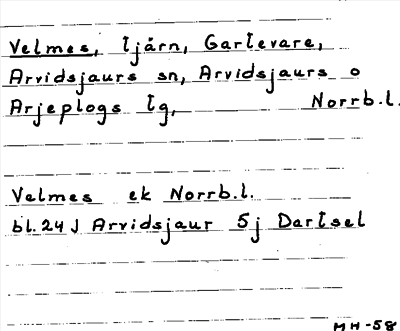 Velmes, tjärn, Gartevare,
Arvidsjaurs sn, Arvidsjaurs o
Arjeplogs tg, Norrb.l.
Velmes ek Norrb.l.
bl. 24 J Arvidsjaur 5j Dartsel
MH-58